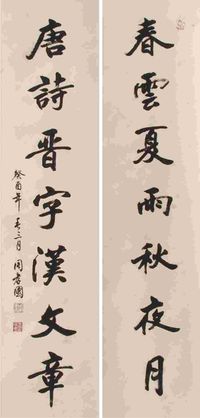 春雲夏雨秋夜月
唐詩晋字漢文章
癸酉年